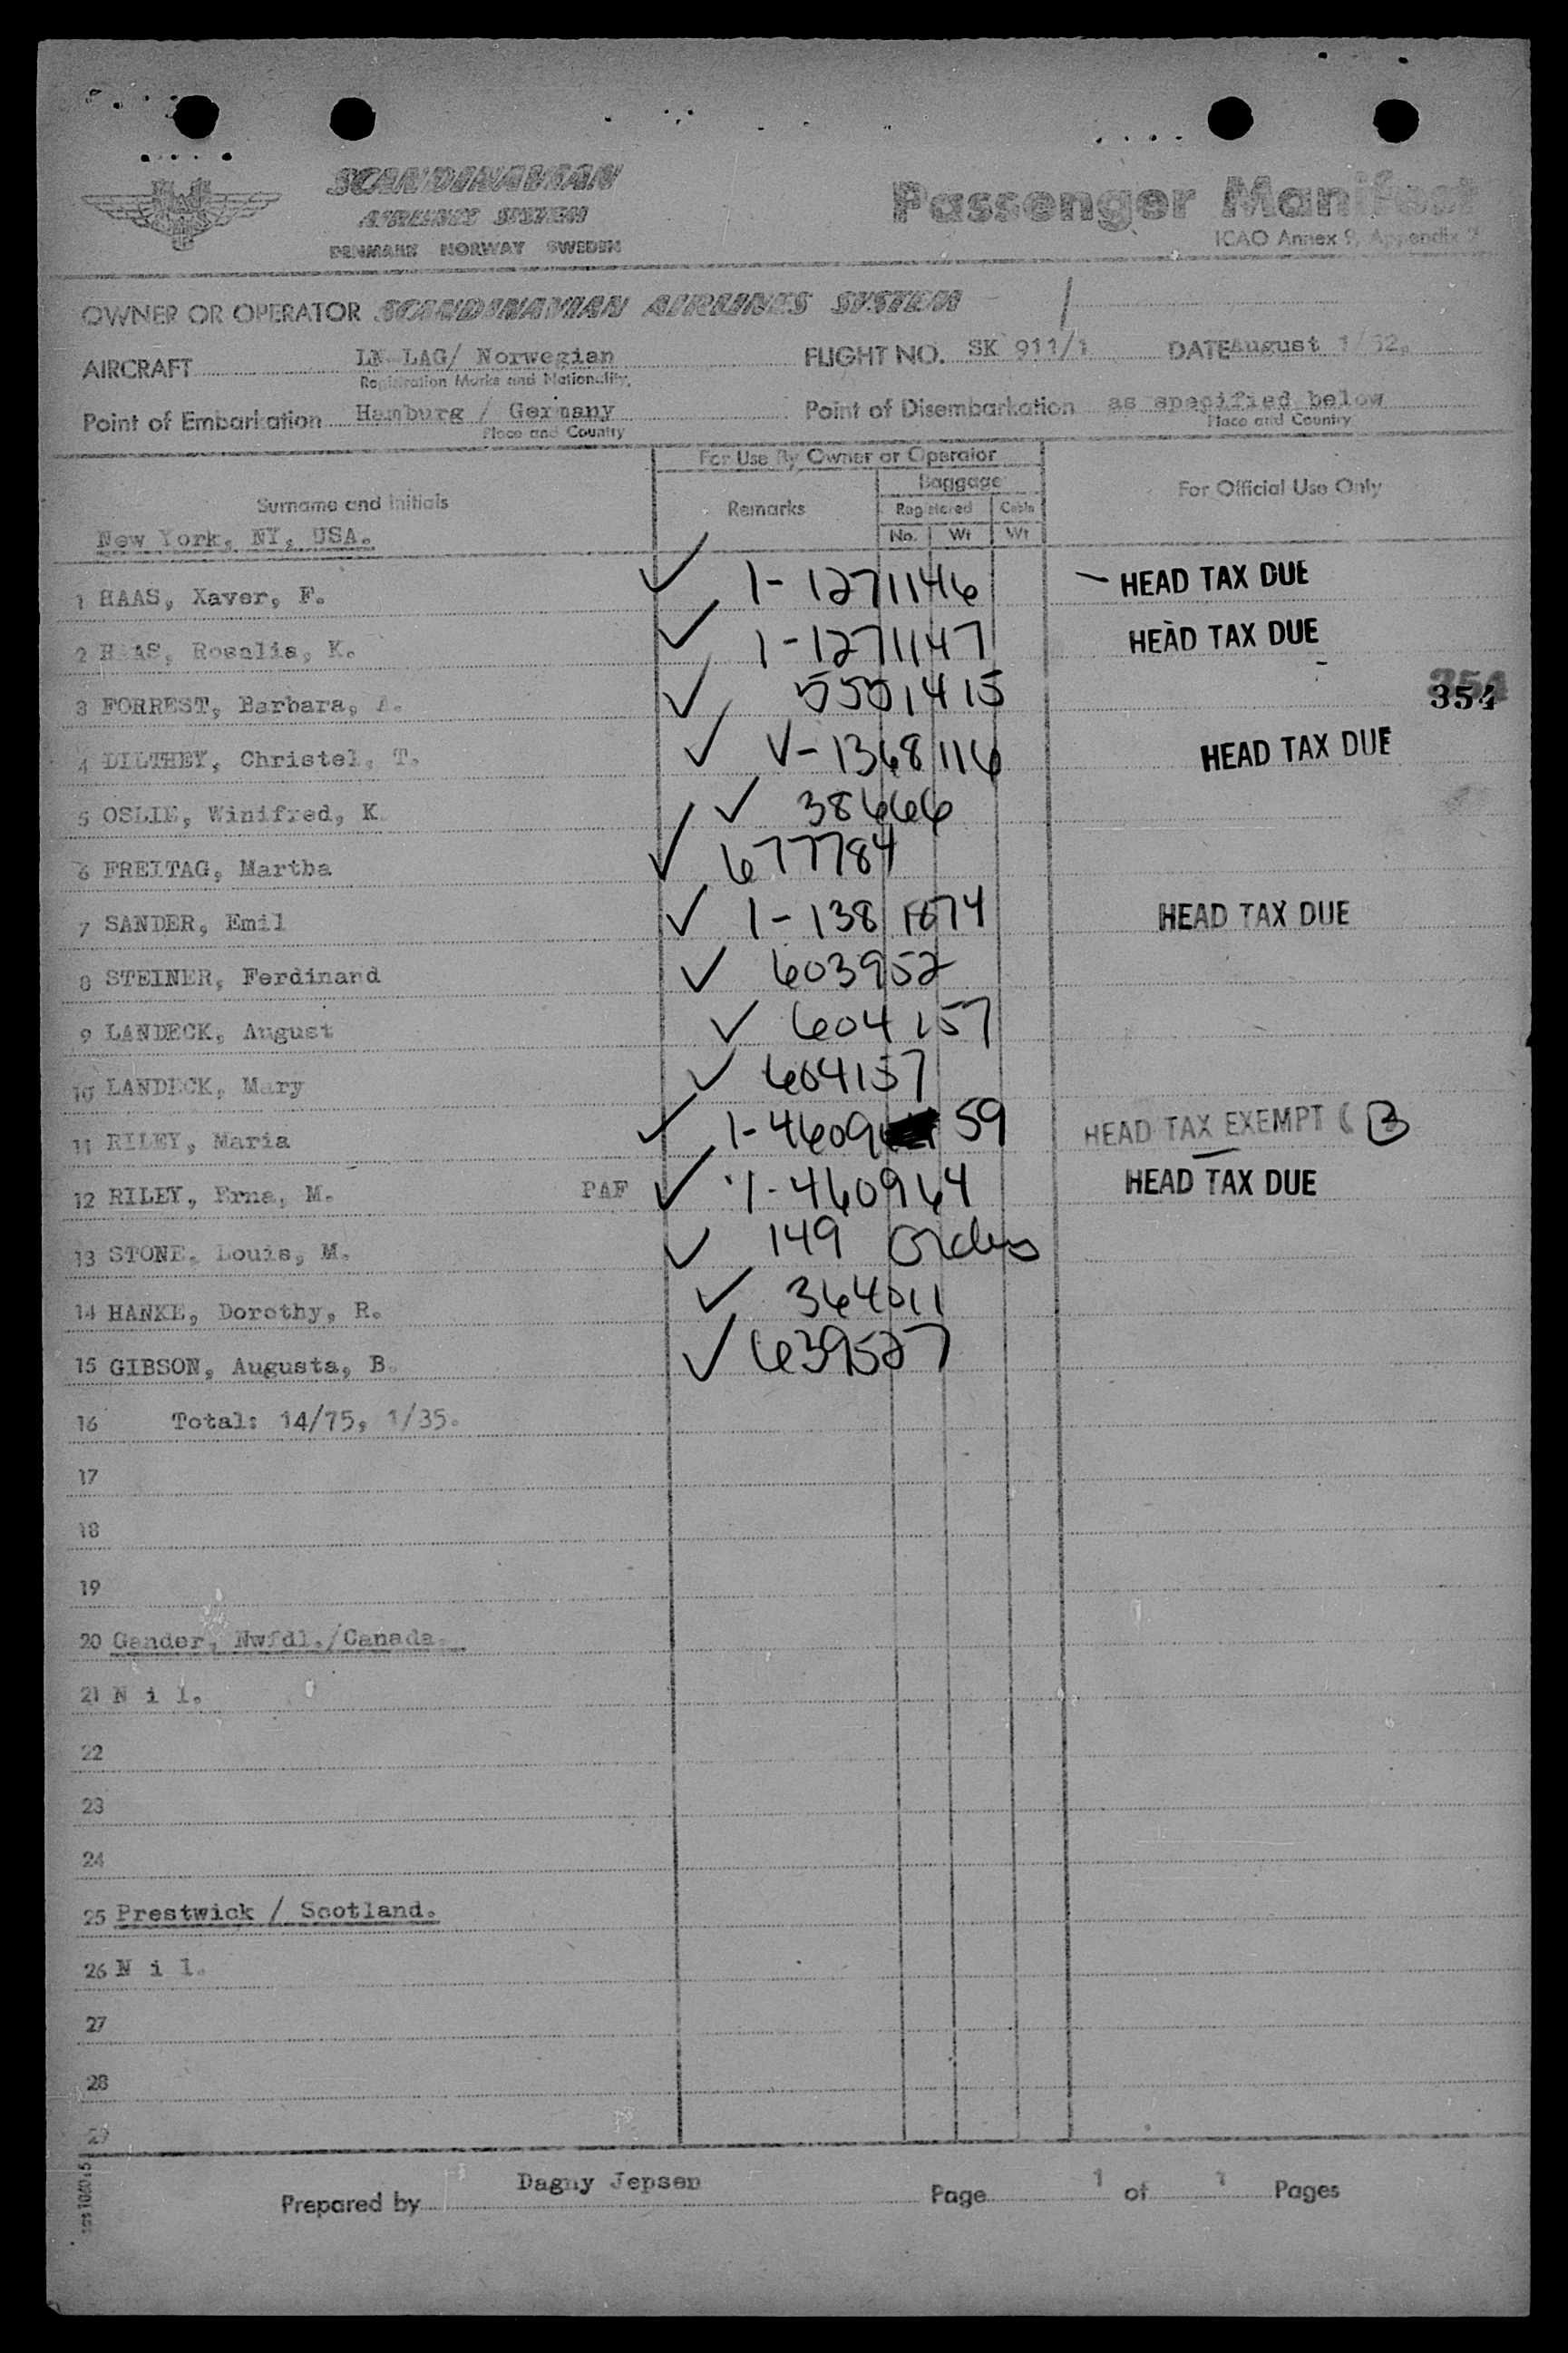 SCANDINAVIAN
AIRLINES SYSTEM
DENMARK NORWAY SWEDEN
Passenger Manifest
ICAO Annex 9, Appendix
OWNER OR OPERATOR SCANDINAVIAN AIRLINES SYSTEM
AIRCRAFT LN-LAG/ Norwegian FLIGHT NO. SK 911/1 DATE August 1/52.
Registration Marks and Nationality.
Point of Embarkation Hamburg / Germany Point of Disembarkation as specified below
Place and Country Place and Country
For Use By Owner or Operator
Surname and Initials Remarks Baggage For Official Use Only
Registered Cabin
No. Wt Wt
New York, NY, USA.
1 HAAS, Xaver, F. ✓ 1-1271146 - HEAD TAX DUE
2 HAAS, Rosalia, K. ✓ 1-1271147 HEAD TAX DUE
3 FORREST, Barbara, A. ✓ 5551415 354
4 DILTHEY, Christel, T. ✓ V-1368116 HEAD TAX DUE
5 OSLIE, Winifred, K. ✓ 38666
6 FREITAG, Martha ✓ 677784
7 SANDER, Emil ✓ 1-138 1874 HEAD TAX DUE
8 STEINER, Ferdinand ✓ 603952
9 LANDECK, August ✓ 604157
10 LANDECK, Mary ✓ 604157
11 RILEY, Maria ✓ 1-4609 59 HEAD TAX EXEMPT ( B
12 RILEY, Erna, M. PAF ✓ 1-460964 HEAD TAX DUE
13 STONE, Louis, M. ✓ 149 Orders
14 HANKE, Dorothy, R. ✓ 364011
15 GIBSON, Augusta, B. ✓ 639527
16 Total: 14/75, 1/35.
17
18
19
20 Gander, Nwfdl./Canada.
21 N i l.
22
23
24
25 Prestwick / Scotland.
26 N i l.
27
28
29
Prepared by Dagny Jepsen Page 1 of 1 Pages